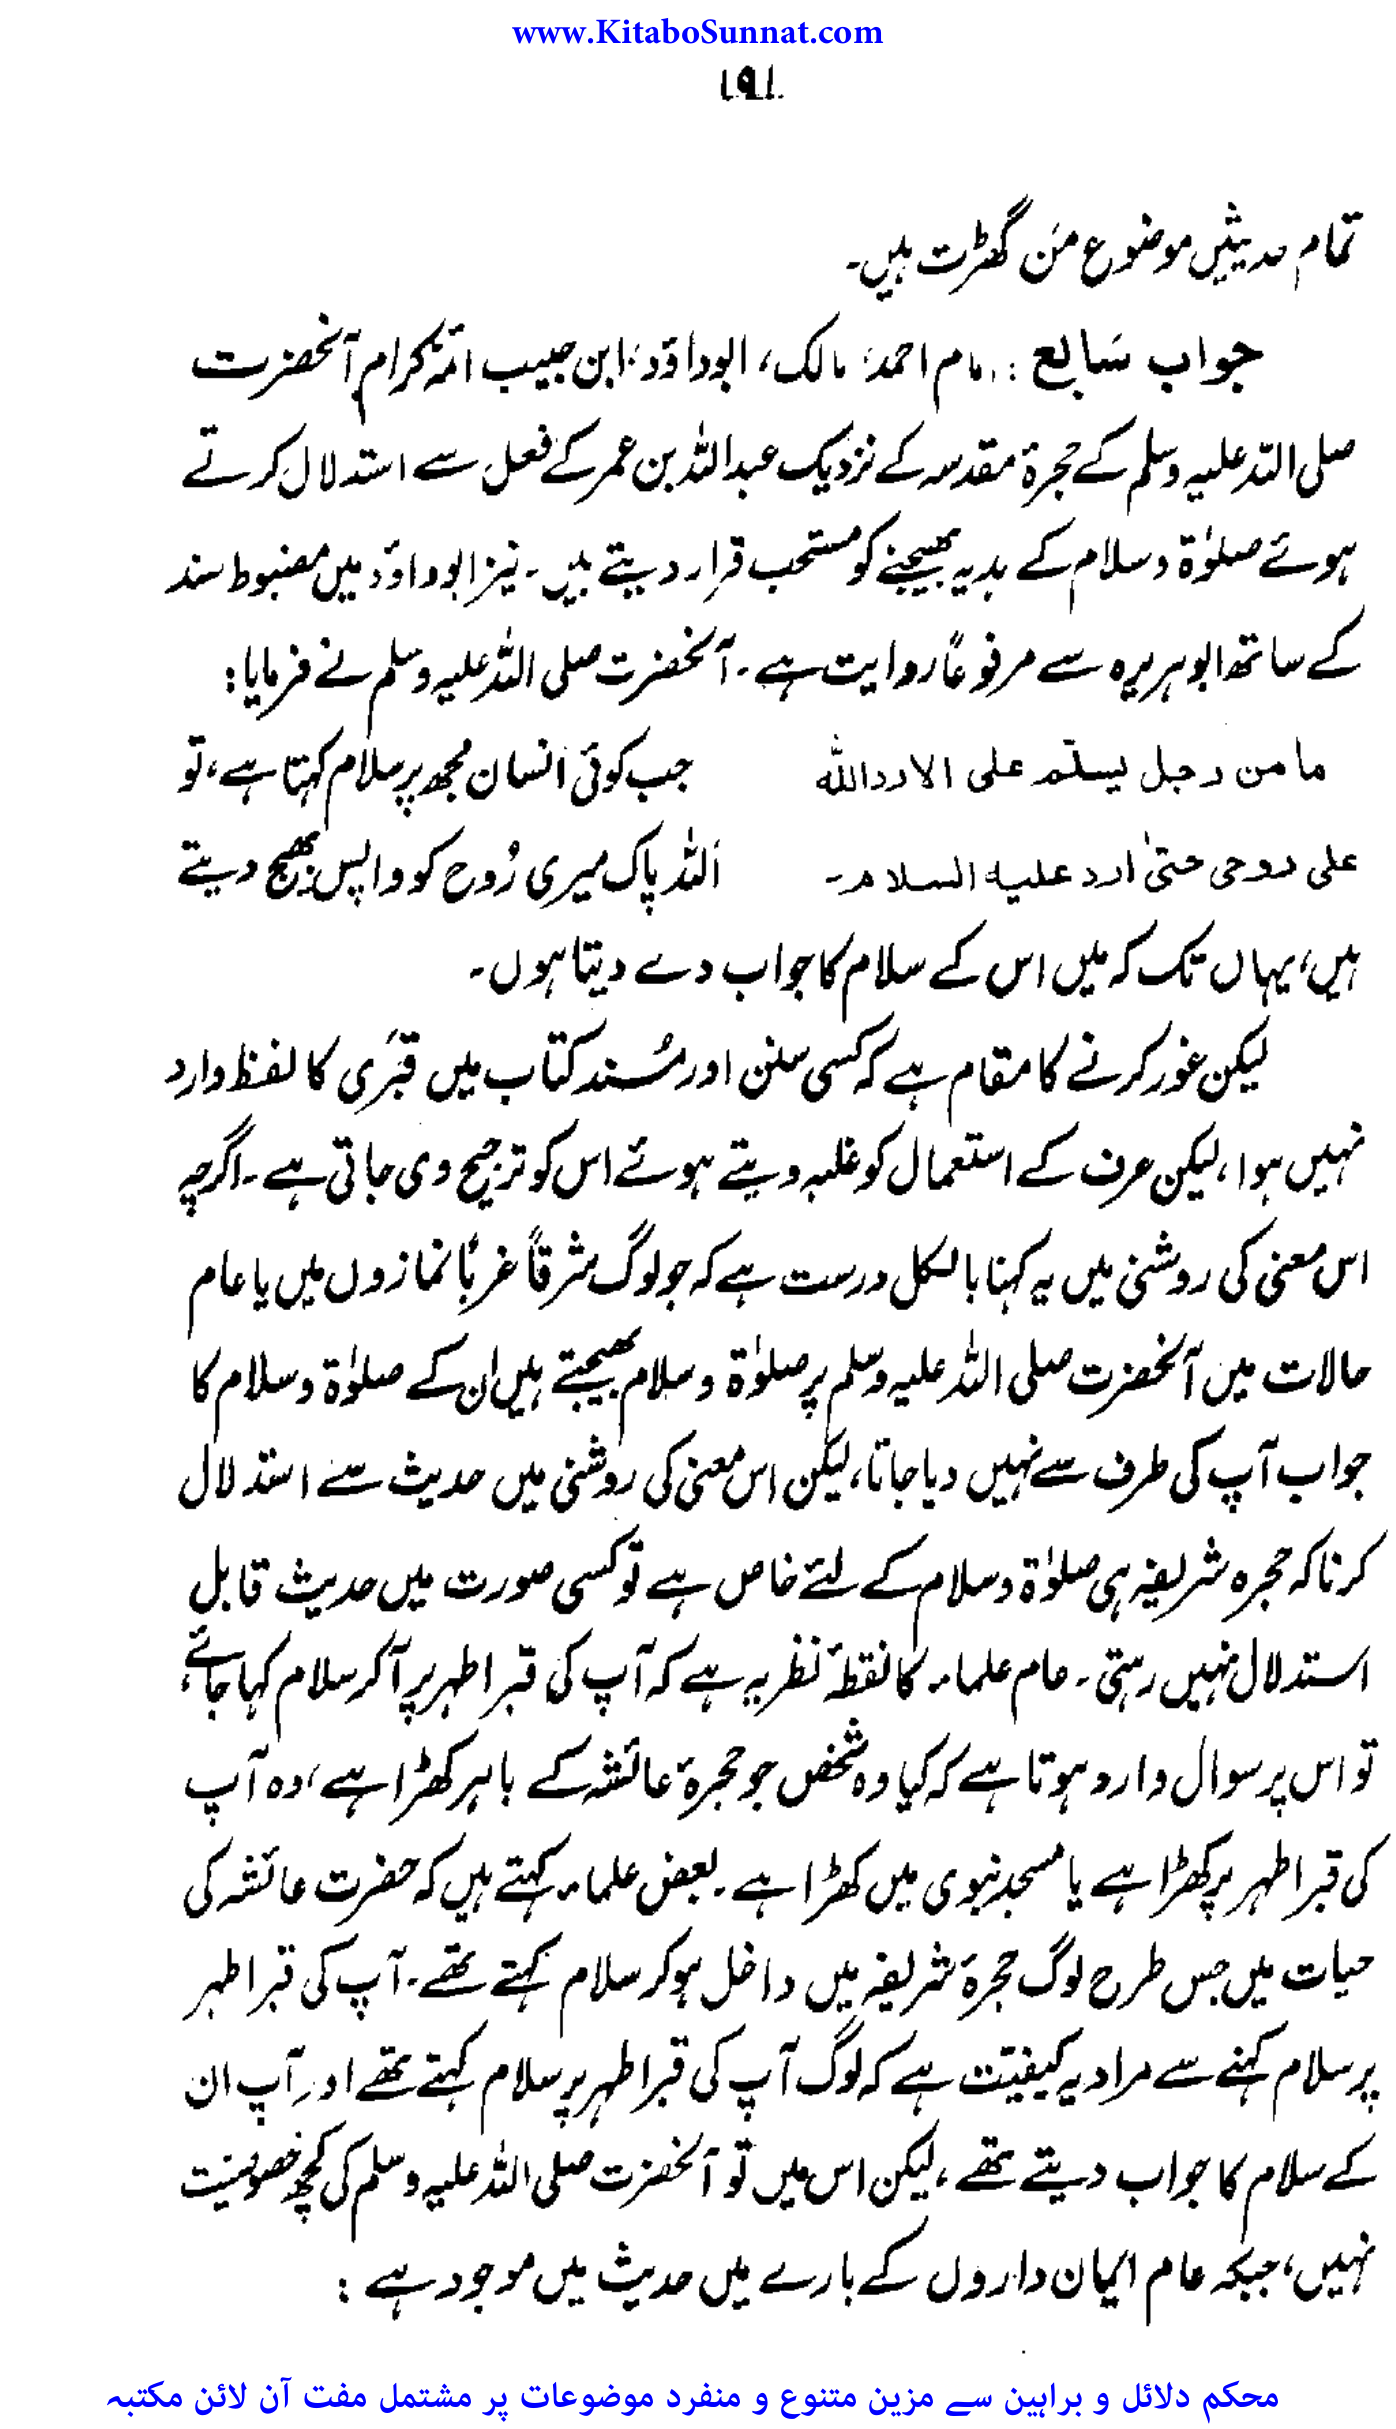 www.KitaboSunnat.com
۱۹۱
تمام حدیثیں موضوع مَن گھڑت ہیں۔
جواب سَابع : امام احمد، مالک، ابوداؤد، ابن حبیب ائمہ کرام آنحضرت
صلی اللہ علیہ وسلم کے حجرۂ مقدسہ کے نزدیک عبداللہ بن عمر کے فعل سے استدلال کرتے
ہوئے صلوٰۃ و سلام کے ہدیہ بھیجنے کو مستحب قرار دیتے ہیں۔ نیز ابوداؤد میں مضبوط سند
کے ساتھ ابوہریرہ سے مرفوعاً روایت ہے۔ آنحضرت صلی اللہ علیہ وسلم نے فرمایا:
مامن رجل یسلّم علی الا ردا للّٰہ جب کوئی انسان مجھ پر سلام کہتا ہے، تو
علی روحی حتیٰ ارد علیہ السلام۔ اللہ پاک میری رُوح کو واپس بھیج دیتے
ہیں، یہاں تک کہ میں اس کے سلام کا جواب دے دیتا ہوں۔
لیکن غور کرنے کا مقام ہے کہ کسی سنن اور مُسند کتاب میں قبَرِی کا لفظ وارد
نہیں ہوا، لیکن عرف کے استعمال کو غلبہ دیتے ہوئے اس کو ترجیح دی جاتی ہے۔ اگرچہ
اس معنی کی روشنی میں یہ کہنا بالکل درست ہے کہ جو لوگ شرقاً غرباً نمازوں میں یا عام
حالات میں آنحضرت صلی اللہ علیہ وسلم پر صلوٰۃ و سلام بھیجتے ہیں ان کے صلوٰۃ و سلام کا
جواب آپ کی طرف سے نہیں دیا جاتا، لیکن اس معنی کی روشنی میں حدیث سے استدلال
کرنا کہ حجرہ شریفہ ہی صلوٰۃ و سلام کے لئے خاص ہے تو کسی صورت میں حدیث قابل
استدلال نہیں رہتی۔ عام علماء کا نقطۂ نظر یہ ہے کہ آپ کی قبر اطہر پر آ کر سلام کہا جائے،
تو اس پر سوال وارد ہوتا ہے کہ کیا وہ شخص جو حجرۂ عائشہ کے باہر کھڑا ہے، وہ آپ
کی قبر اطہر پر کھڑا ہے یا مسجد نبوی میں کھڑا ہے۔ بعض علماء کہتے ہیں کہ حضرت عائشہ کی
حیات میں جس طرح لوگ حجرۂ شریفہ میں داخل ہو کر سلام کہتے تھے۔ آپ کی قبر اطہر
پر سلام کہنے سے مراد یہ کیفیّت ہے کہ لوگ آپ کی قبر اطہر پر سلام کہتے تھے اور آپ ان
کے سلام کا جواب دیتے تھے، لیکن اس میں تو آنحضرت صلی اللہ علیہ وسلم کی کچھ خصوصیّت
نہیں، جبکہ عام ایمان داروں کے بارے میں حدیث میں موجود ہے :
محکم دلائل و براہین سے مزین متنوع و منفرد موضوعات پر مشتمل مفت آن لائن مکتبہ